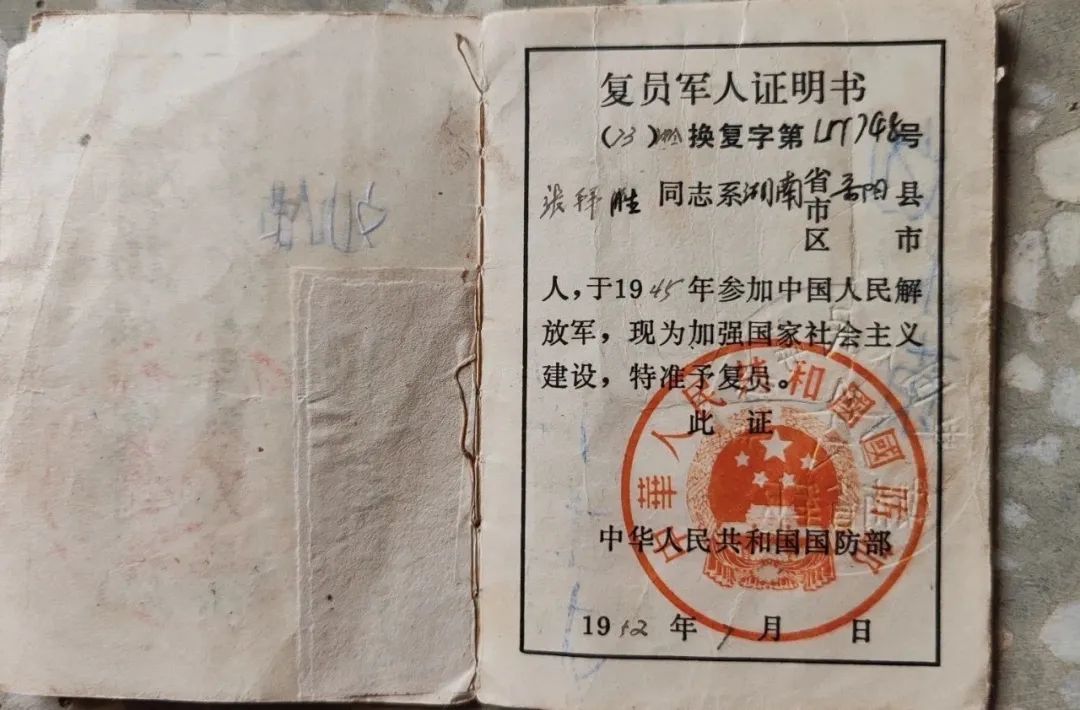 复员军人证明书
(73) 换复字第 748号
张 胜 同志系湖南省市区岳阳县市
人，于1945年参加中国人民解
放军，现为加强国家社会主义
建设，特准予复员。
此 证
中华人民共和国国防部
中華人民共和國國防部
1952年7月 日